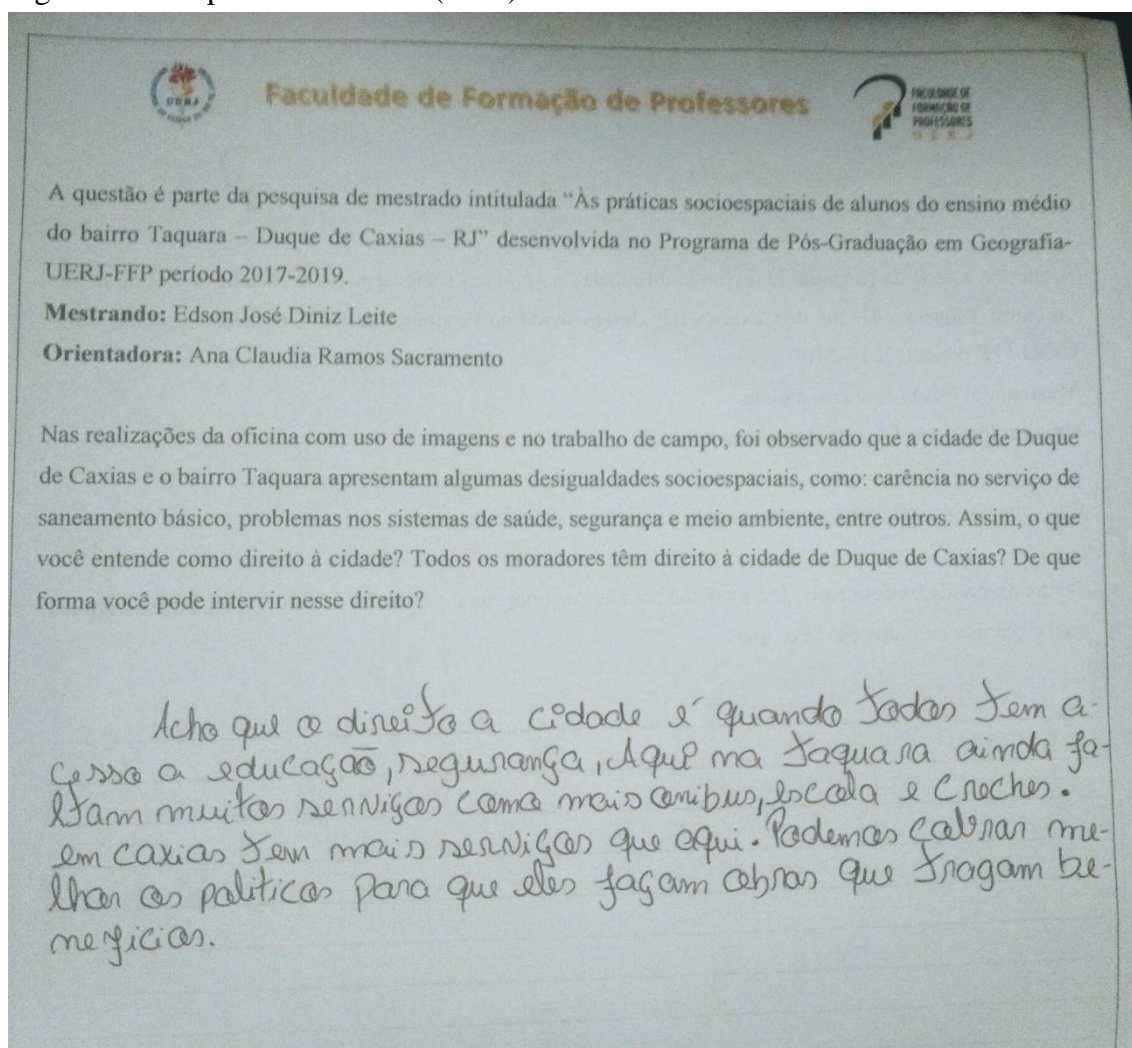 UERJ
Faculdade de Formação de Professores
FACULDADE DE
FORMAÇÃO DE
PROFESSORES
UERJ
A questão é parte da pesquisa de mestrado intitulada “Às práticas socioespaciais de alunos do ensino médio
do bairro Taquara – Duque de Caxias – RJ” desenvolvida no Programa de Pós-Graduação em Geografia-
UERJ-FFP período 2017-2019.
Mestrando: Edson José Diniz Leite
Orientadora: Ana Claudia Ramos Sacramento
Nas realizações da oficina com uso de imagens e no trabalho de campo, foi observado que a cidade de Duque
de Caxias e o bairro Taquara apresentam algumas desigualdades socioespaciais, como: carência no serviço de
saneamento básico, problemas nos sistemas de saúde, segurança e meio ambiente, entre outros. Assim, o que
você entende como direito à cidade? Todos os moradores têm direito à cidade de Duque de Caxias? De que
forma você pode intervir nesse direito?
Acho que o direito a cidade é quando todos tem a-
cesso a educação, segurança, Aqui na Taquara ainda fa-
ltam muitos serviços como mais onibus, escola e creches.
em caxias tem mais serviços que aqui. Podemos cobrar me-
lhor os politicos para que eles façam obras que tragam be-
neficios.